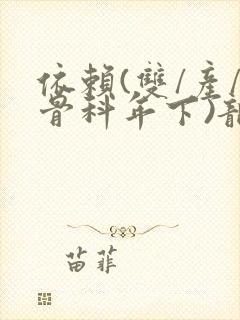 依賴(雙/產/
骨科年下)
苗菲